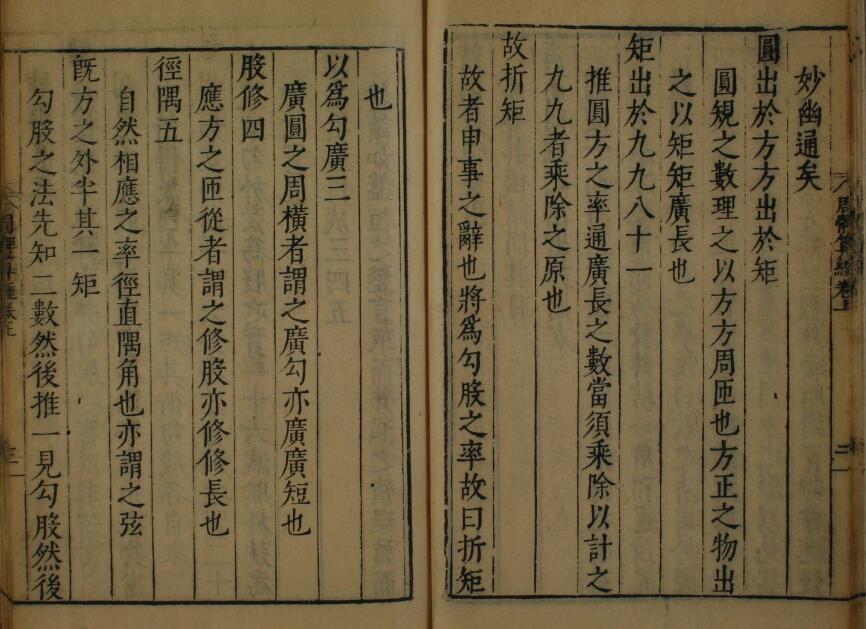 妙幽通矣
圓出於方方出於矩
圓規之數理之以方方周匝也方正之物出
之以矩矩廣長也
矩出於九九八十一
推圓方之率通廣長之數當須乘除以計之
九九者乘除之原也
故折矩
故者申事之辭也將爲勾股之率故曰折矩
也
以爲勾廣三
廣圓之周橫者謂之廣勾亦廣廣短也
股修四
應方之匝從者謂之修股亦修修長也
徑隅五
自然相應之率徑直隅角也亦謂之弦
旣方之外半其一矩
勾股之法先知二數然後推一見勾股然後